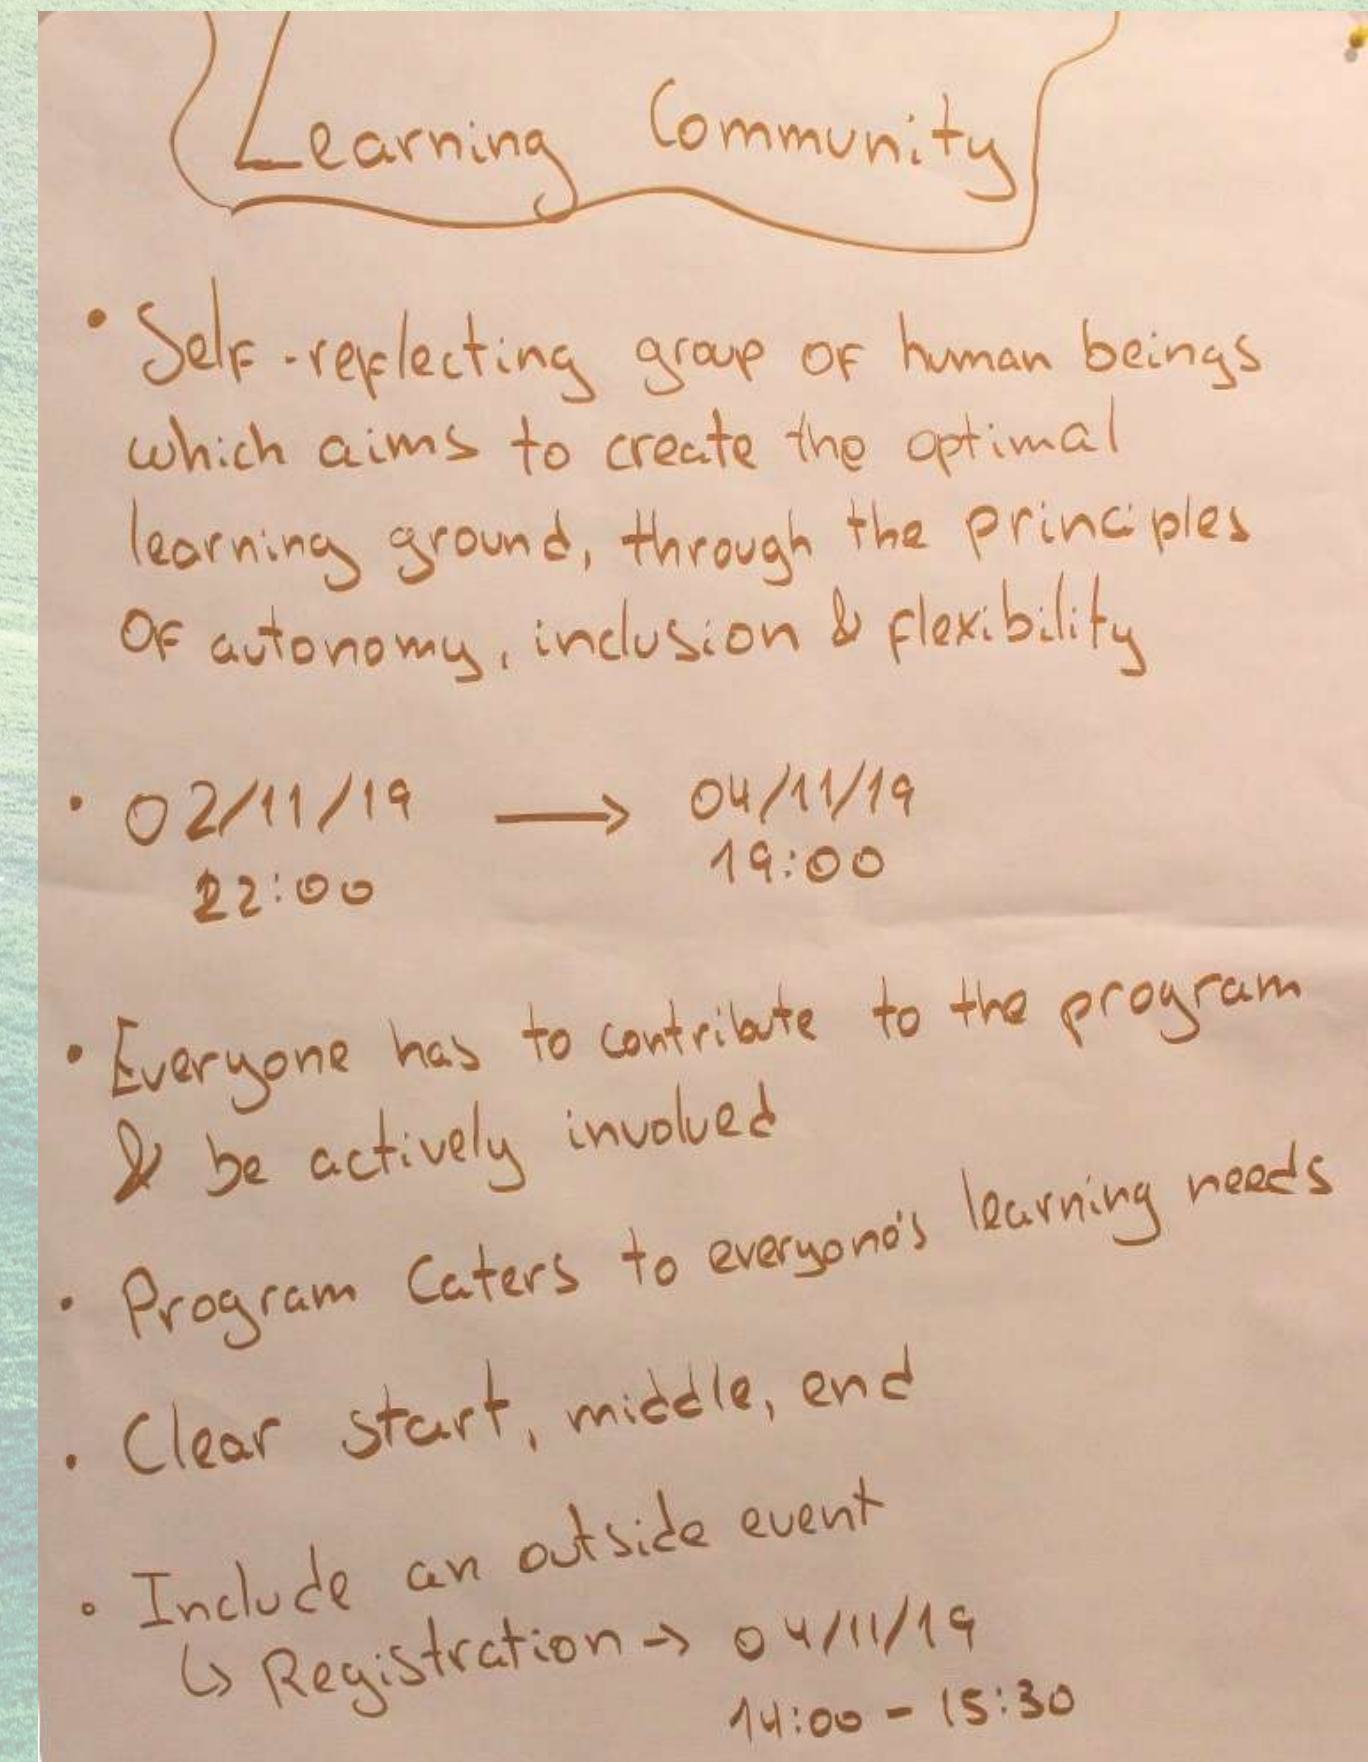 Learning Community
• Self-reflecting group of human beings
which aims to create the optimal
learning ground, through the principles
of autonomy, inclusion & flexibility
• 02/11/19 → 04/11/19
22:00 19:00
• Everyone has to contribute to the program
& be actively involved
• Program Caters to everyone's learning needs
• Clear start, middle, end
• Include an outside event
↳ Registration → 04/11/19
14:00 - 15:30